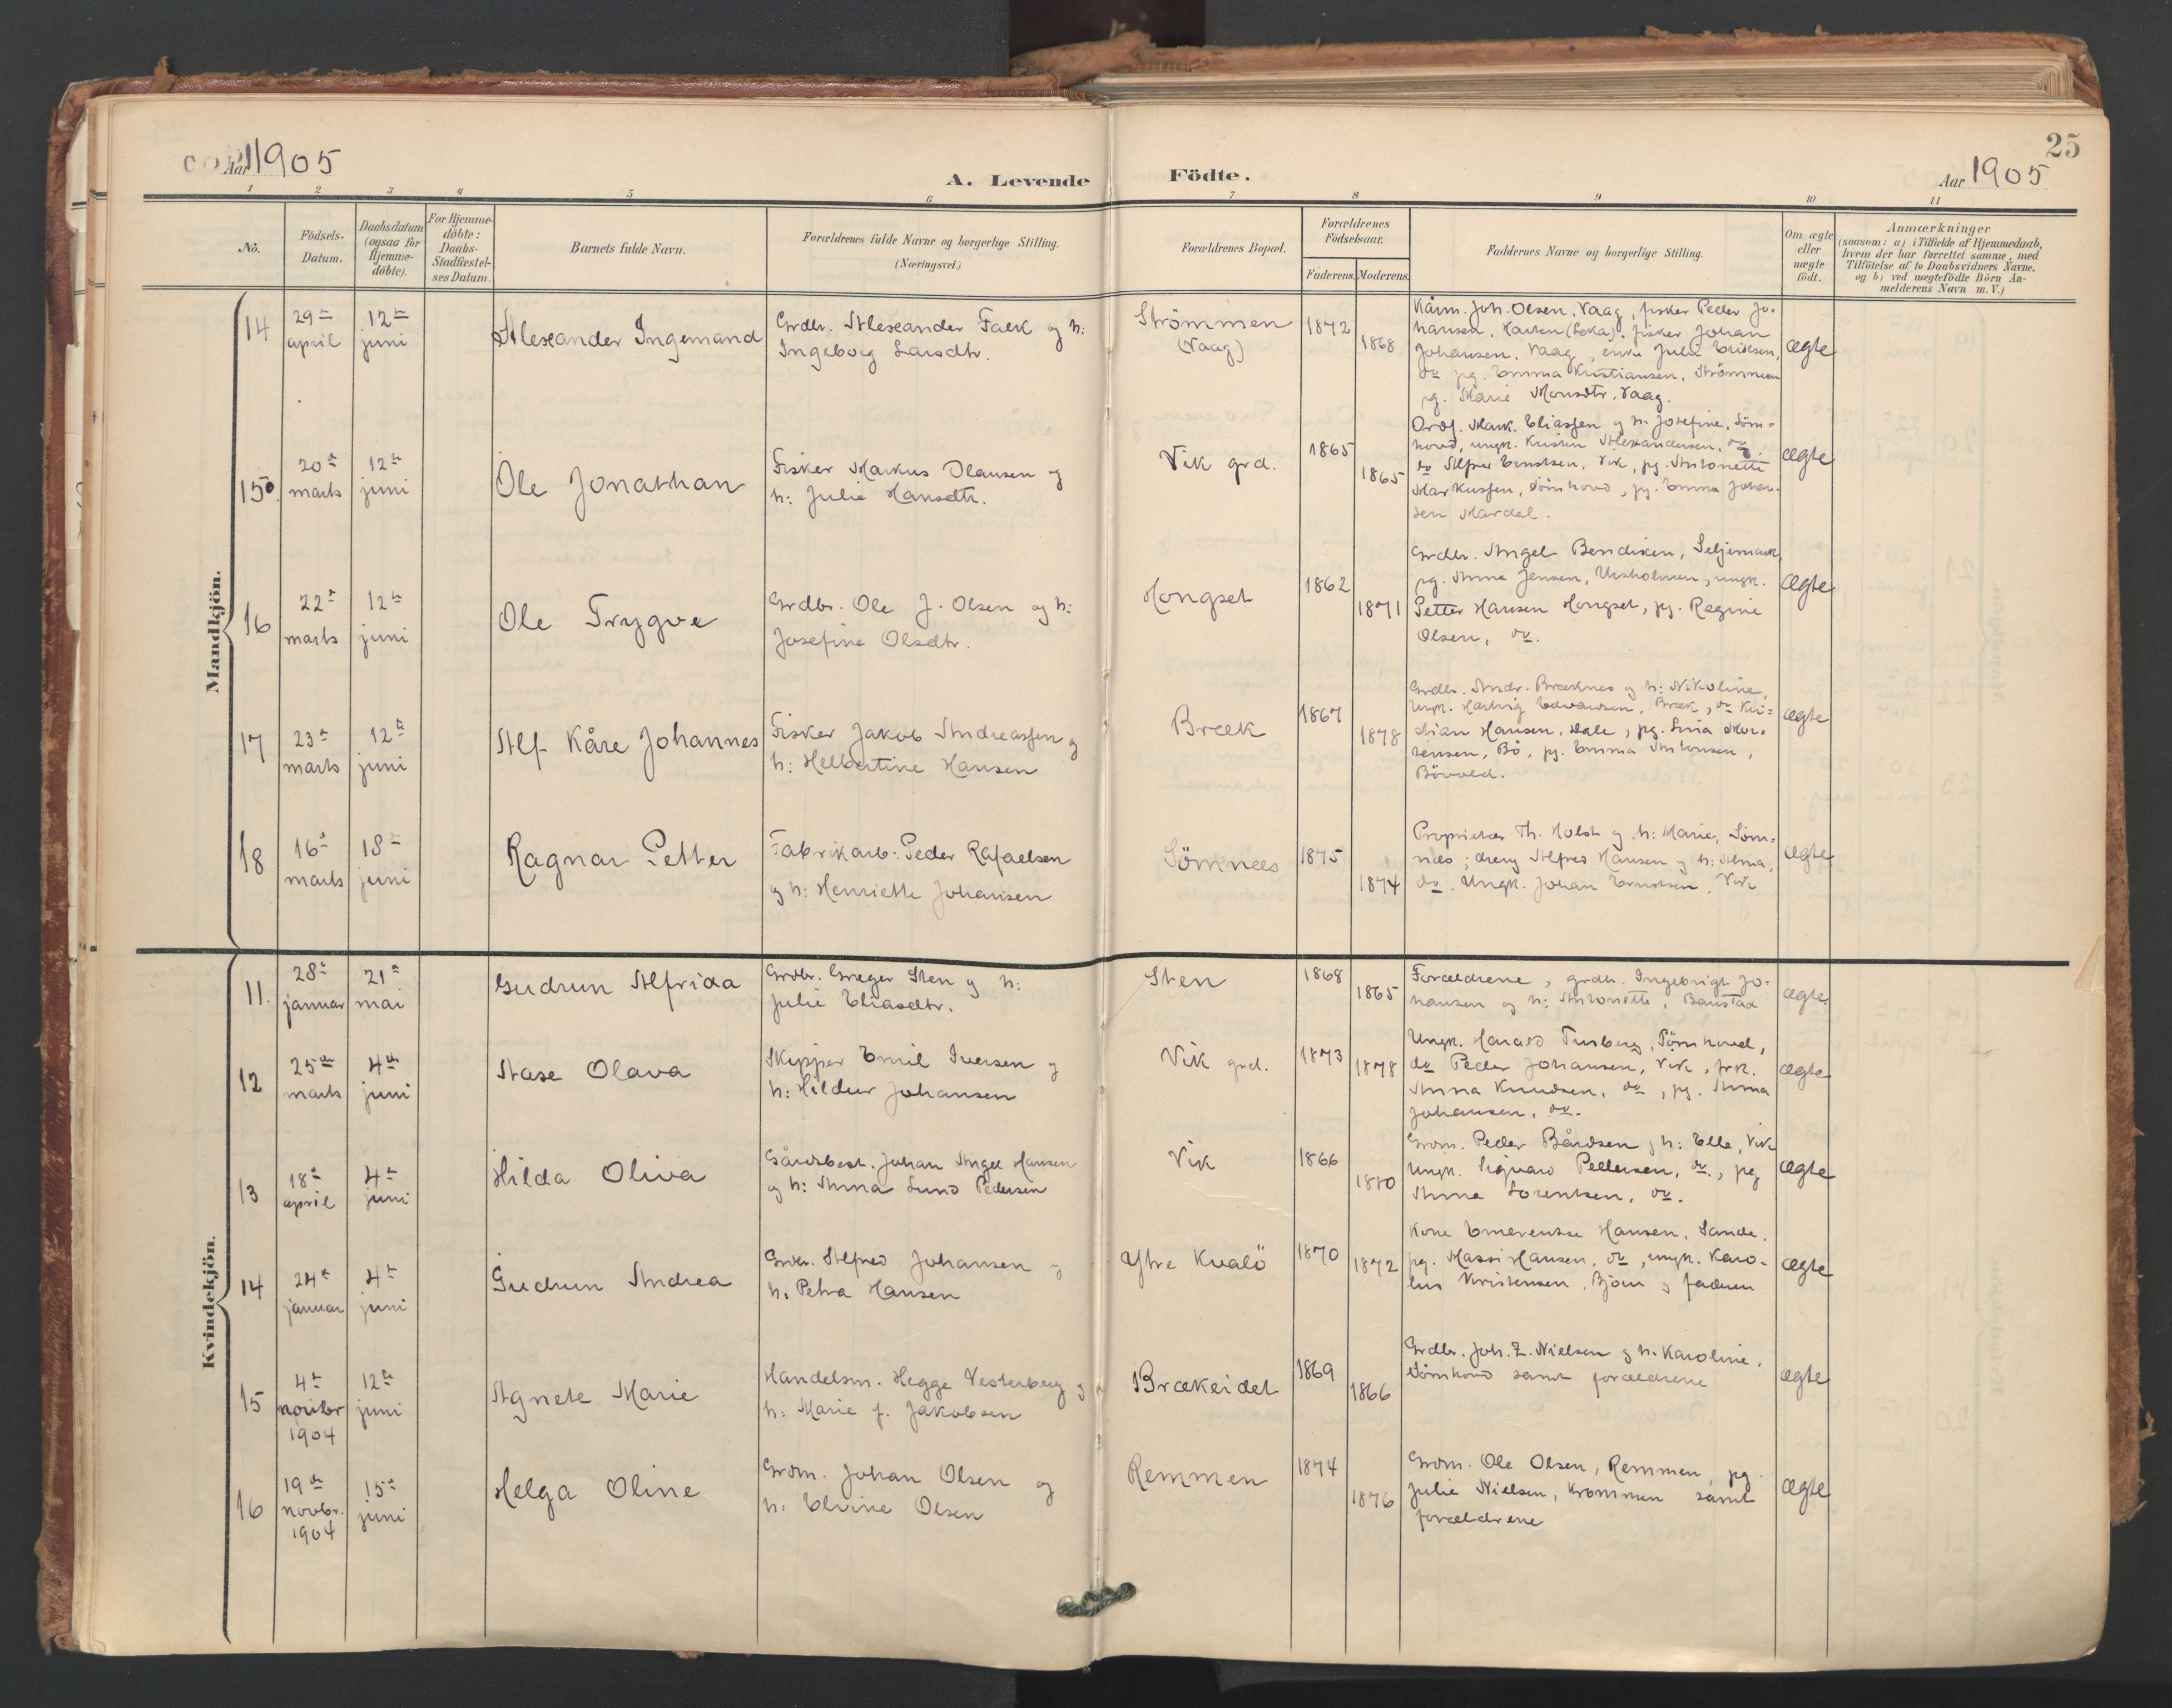 25
Aar 1905
A. Levende Födte.
Aar 1905
1 2 3 4 5 6 7 8 9 10 11
No.
Födsels-Datum.
Daabsdatum (ogsaa for Hjemme-döbte).
For Hjemme-döbte: Daabs-Stadfæstel-ses Datum.
Barnets fulde Navn.
Forældrenes fulde Navne og borgerlige Stilling.
(Næringsvei.)
Forældrenes Bopæl.
Forældrenes Födselsaar.
Faderens. Moderens.
Faddernes Navne og borgerlige Stilling.
Om ægte eller uægte födt.
Anmærkninger
(saasom: a) i Tilfælde af Hjemmedaab,
hvem der har forrettet samme, med
Tilföielse af to Daabsvidners Navne,
og b) ved uægtefödte Börn An-
melderens Navn m. V.)
Mandkjön.
14
29de april
12te juni
Alexander Ingemand
Grdbr. Alexander Falk og h:
Ingeborg Larsdtr.
Strömmen
(Vaag)
1872
1868
Kårm. Joh. Olsen, Vaag, fisker Peder Jo-
hansen, (Leka), fisker Johan
Johansen, Vaag, enke Julie Eriksen,
do pg. Emma Kristiansen, Strömmen
pg. Marie Monsdtr, Vaag.
ægte
15
20de marts
12te juni
Ole Jonathan
Fisker Markus Olausen og
h: Julie Hansdtr.
Vik grd.
1865
1865
Ordf. Mark. Eliassen og h. Josefine, Söm-
hovd, ungk. Kristen Alexandersen, do
do Alfred Knudsen, Vik, pg. Antonette
Markussen, Sömhovd, pg. Emma Johan-
sen Mardal.
ægte
16
22de marts
12te juni
Ole Trygve
Grdbr. Ole J. Olsen og h:
Josefine Olsdtr.
Hongset
1862
1871
Grdbr. Angel Bendiksen, Seljemark,
pg. Anna Jensen, Uksholmen, ungk.
Petter Hansen Hongset, pg. Regine
Olsen, do.
ægte
17
23de marts
12te juni
Alf Kåre Johannes
Fisker Jakob Andreassen og
h: Helbertine Hansen
Bræk
1867
1878
Grdbr. Andr. Bræknes og h: Nikoline,
ungk. Hartvig Edvardsen, Bræk, do Kri-
stian Hansen, Dale, pg. Lina Mor-
tensen, Bö, pg. Emma Antonsen,
Bövold.
ægte
18
16de marts
18de juni
Ragnar Petter
Fabrikarb: Peder Rafaelsen
og h: Henriette Johansen
Sömnæs
1875
1874
Proprietær Th. Holst og h: Marie, Söm-
næs; dreng Alfred Hansen og h: Alma,
do. Ungk. Johan Knudsen, Vik
ægte
Kvindekjön.
11.
28de januar
21de mai
Gudrun Alfrida
Grdbr. Greger Sten og h:
Julie Eliasdtr.
Sten
1868
1865
Forældrene, grdbr. Ingebrigt Jo-
hansen og h: Antonette, Baustad
ægte
12
25de marts
4de juni
Aase Olava
Skipper Emil Iversen og
h: Hildur Johansen
Vik grd.
1873
1878
Ungk. Harald Tusberg, Sömhovd,
do Peder Johansen, Vik, frk.
Anna Knudsen, do, pg. Anna
Johansen, do.
ægte
13
18de april
4de juni
Hilda Oliva
Gårdbest. Johan Angel Hansen
og h: Anna Lund Pedersen
Vik
1866
1880
Grdm. Peder Bårdsen, h: Elle, Vik
ungk. Sigvard Pettersen, do., pg
Anna Lorentsen, do.
ægte
14
24de januar
4de juni
Gudrun Andrea
Grdbr. Alfred Johansen og
h. Petra Hansen
Ytre Kvalö
1870
1872
Kone Emerentse Hansen, Sande.
pg. Massi Hansen, do, ungk. Karo-
lius Kristensen, Björn og faderen
ægte
15
4de novbr 1904
12te juni
Agnete Marie
Handelsm. Hegge Vesterberg og
h: Marie f. Jakobsen
Brækeidet
1869
1866
Grdbr. Joh. Z. Nielsen og h. Karoline,
Sömhovd samt forældrene
ægte
16
19de novbr. 1904
15de juni
Helga Oline
Grdm. Johan Olsen og
h: Elvine Olsen
Remmen
1874
1876
Grdm. Ole Olsen, Remmen, pg.
Julie Nielsen, Krommen samt
forældrene
ægte